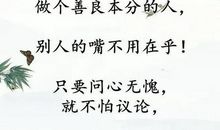 做个善良本分的人，
别人的嘴不用在乎！
只要问心无愧，
就不怕议论，